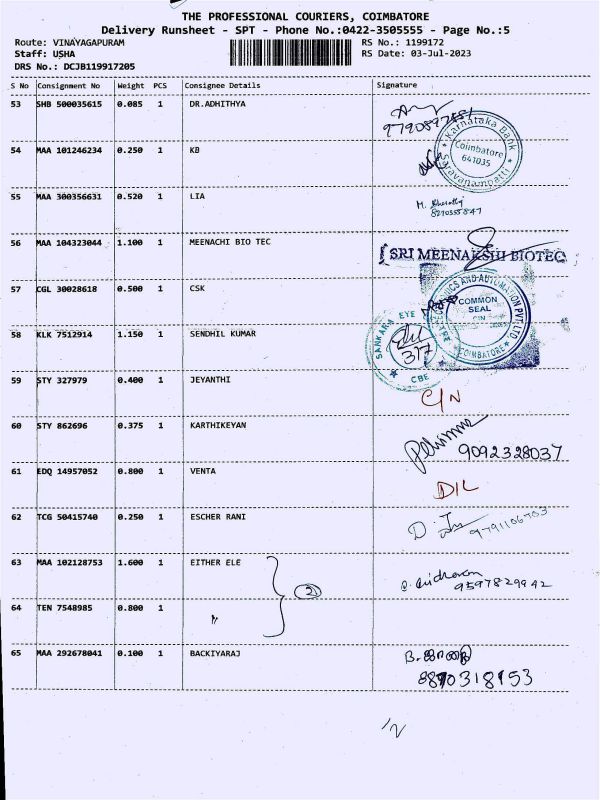 THE PROFESSIONAL COURIERS, COIMBATORE
Delivery Runsheet - SPT - Phone No.:0422-3505555 - Page No.:5
Route: VINAYAGAPURAM RS No.: 1199172
Staff: USHA RS Date: 03-Jul-2023
DRS No.: DCJB119917205
S No Consignment No Weight PCS Consignee Details Signature
53 SHB 500035615 0.085 1 DR.ADHITHYA
Karnataka Bank
Coimbatore
641035
Saravanampatti
54 MAA 101246234 0.250 1 KB
55 MAA 300356631 0.520 1 LIA
56 MAA 104323044 1.100 1 MEENACHI BIO TEC
SRI MEENAKSHI BIOTEC
57 CGL 30028618 0.500 1 CSK
AND AUTOMATION PVT LTD
COMMON
SEAL
COIMBATORE
58 KLK 7512914 1.150 1 SENDHIL KUMAR
SANKARA EYE CENTRE
CBE
59 STY 327979 0.400 1 JEYANTHI
C/N
60 STY 862696 0.375 1 KARTHIKEYAN
9092328037
61 EDQ 14957052 0.800 1 VENTA
D/L
62 TCG 50415740 0.250 1 ESCHER RANI
9791106703
63 MAA 102128753 1.600 1 EITHER ELE
2
9597829942
64 TEN 7548985 0.800 1 "
65 MAA 292678041 0.100 1 BACKIYARAJ